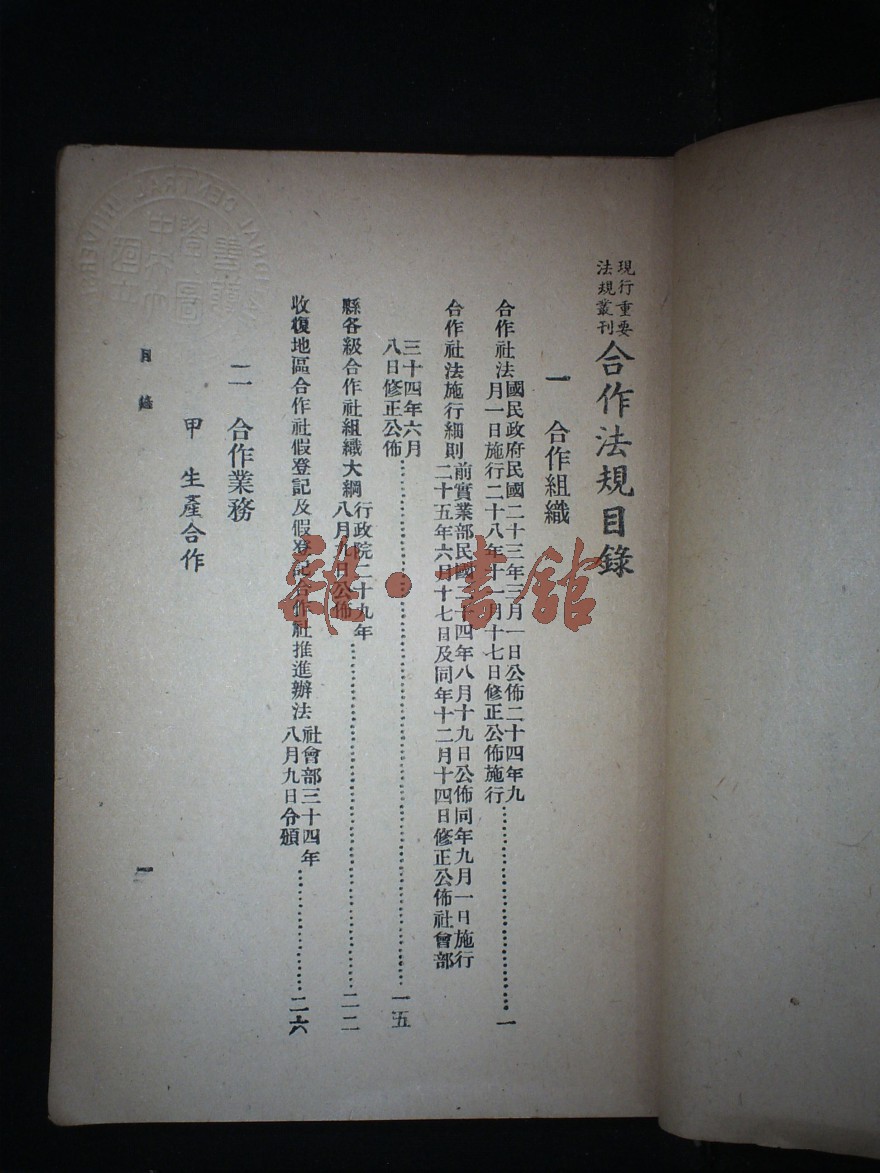 現行重要
法規叢刊
合作法規目錄
一 合作組織
合作社法
國民政府民國二十三年三月一日公佈二十四年九
月一日施行二十八年十一月十七日修正公佈施行
一
合作社法施行細則
前實業部民國二十四年八月十九日公佈同年九月一日施行
二十五年六月十七日及同年十二月十四日修正公佈社會部
三十四年六月
八日修正公佈
一五
縣各級合作社組織大綱
行政院二十九年
八月九日公佈
二二
收復地區合作社假登記及假登記合作社推進辦法
社會部三十四年
八月九日令頒
二六
二 合作業務
甲 生產合作
目錄
一
雜·書館